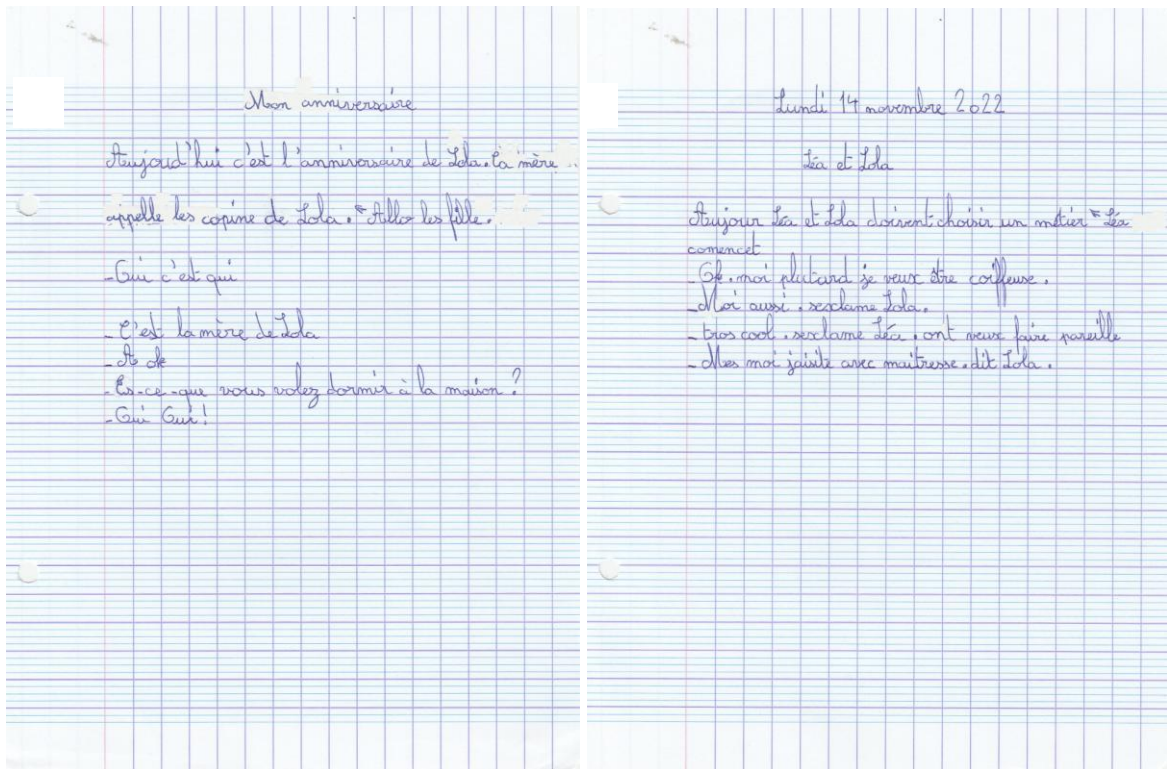 Mon anniversaire
Aujoud'hui c'est l'anniversaire de Lola. la mère
appelle les copine de Lola. "Allo les fille.
- Oui c'est qui
- C'est la mère de Lola
- A ok
- Es-ce-que vous volez dormir à la maison ?
- Oui Oui !
Lundi 14 novembre 2022
Léa et Lola
Aujour Léa et Lola doivent choisir un métier " Léa
comencet
- Ok. moi plutard je veux être coiffeuse.
- Moi aussi. sexclame Lola.
- tros cool. sexclame Léa. ont veux faire pareille
- Mes moi jaisite avec maitresse. dit Lola.